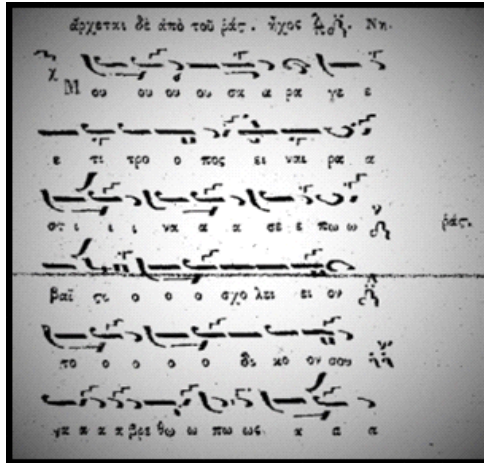 ἄρχεται δὲ ἀπὸ τοῦ ῥάς. ἦχος Νη.
Μ ου ου ου ου σα α ρα γε ε
ε τι τρο ο πος ει ναι ρα α
στ ι ι ι να α α σε ε πω ω ῥάς.
βαϊ στι ο ο ο σχο λει ει ον
πο ο ο ο ο δι κο ον σου
γκ α α α βρε θω ω πω ως κ α α